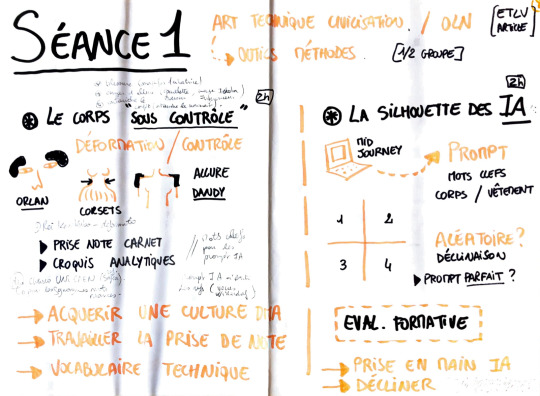 SÉANCE 1
ART TECHNIQUE CIVILISATION. / OLN
[ETLV ARTICLE]
OUTILS MÉTHODES. [1/2 GROUPE]
2h
LE CORPS "SOUS CONTRÔLE"
DÉFORMATION / CONTRÔLE
ORLAN
CORSETS
ALLURE
DANDY
PRISE NOTE CARNET
CROQUIS ANALYTIQUES
ACQUERIR UNE CULTURE DMA
TRAVAILLER LA PRISE DE NOTE
VOCABULAIRE TECHNIQUE
2h
LA SILHOUETTE DES IA
MID
JOURNEY
PROMPT
MOTS CLEFS
CORPS / VÊTEMENT
1 2
3 4
ALÉATOIRE ?
DÉCLINAISON
PROMPT PARFAIT ?
EVAL. FORMATIVE
PRISE EN MAIN IA
DÉCLINER